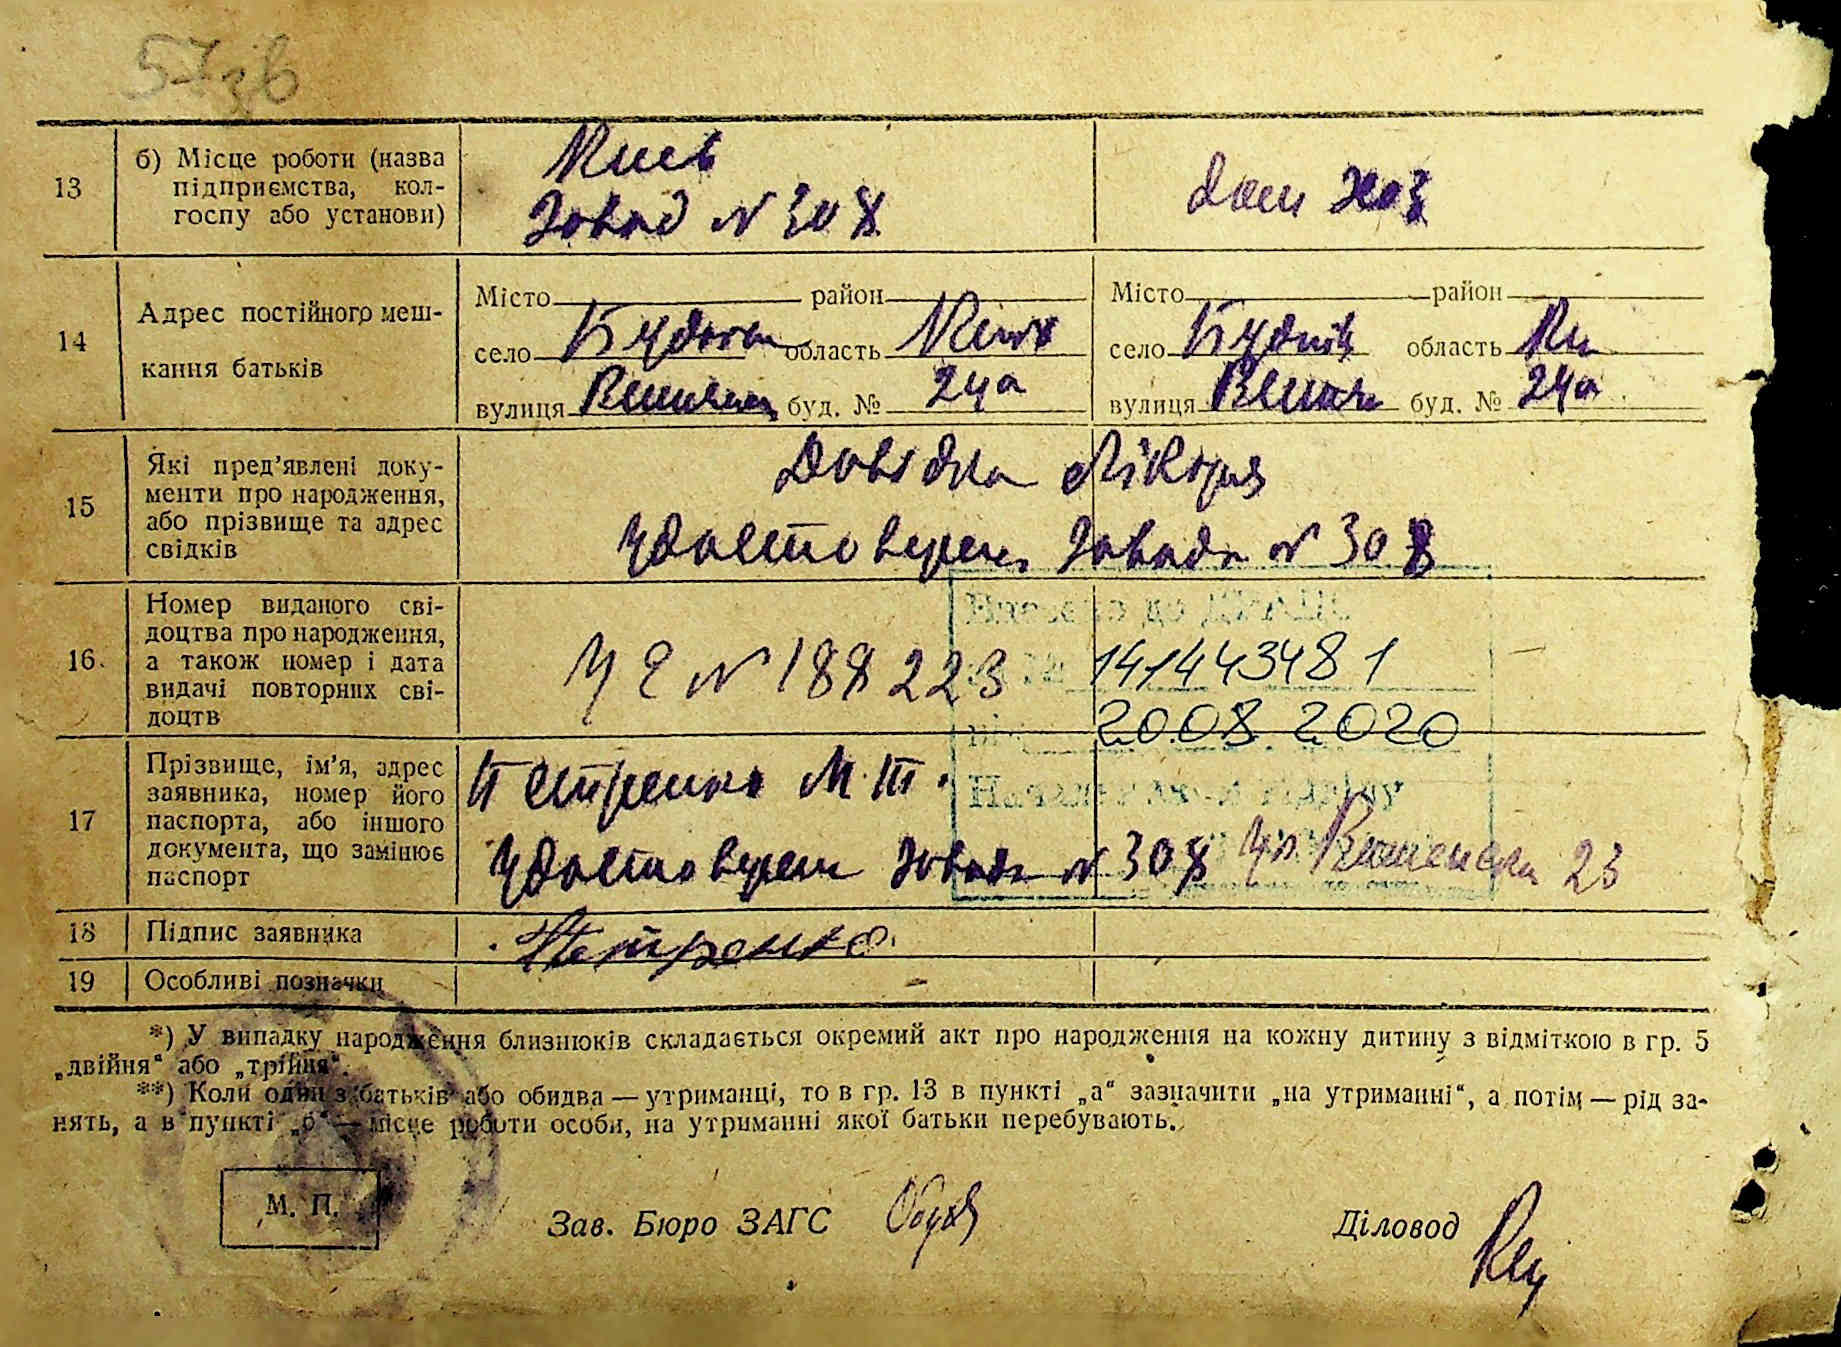 57зв
13
б) Місце роботи (назва
підприємства, кол-
госпу або установи)
Киев
Завод № 308
дом хоз
14
Адрес постійного меш-
кання батьків
Місто район
село область Киев
вулиця буд. № 24а
Місто район
село область Ки
вулиця буд. № 24а
15
Які пред’явлені доку-
менти про народження,
або прізвище та адрес
свідків
Довідка Лікаря
Удостоверен. Завода № 308
16.
Номер виданого сві-
доцтва про народження,
а також номер і дата
видачі повторних сві-
доцтв
УЕ № 188223
141443481
20.08 2020
17
Прізвище, ім’я, адрес
заявника, номер його
паспорта, або іншого
документа, що замінює
паспорт
Петренко М. Т.
Удостоверен Завода № 308 ул 23
18
Підпис заявника
Петренко
19
Особливі позначки
*) У випадку народження близнюків складається окремий акт про народження на кожну дитину з відміткою в гр. 5
„двійня“ або „трійня“.
**) Коли один з батьків або обидва — утриманці, то в гр. 13 в пункті „а“ зазначити „на утриманні“, а потім — рід за-
нять, а в пункті „б“ — місце роботи особи, на утриманні якої батьки перебувають.
М. П.
Зав. Бюро ЗАГС
Діловод